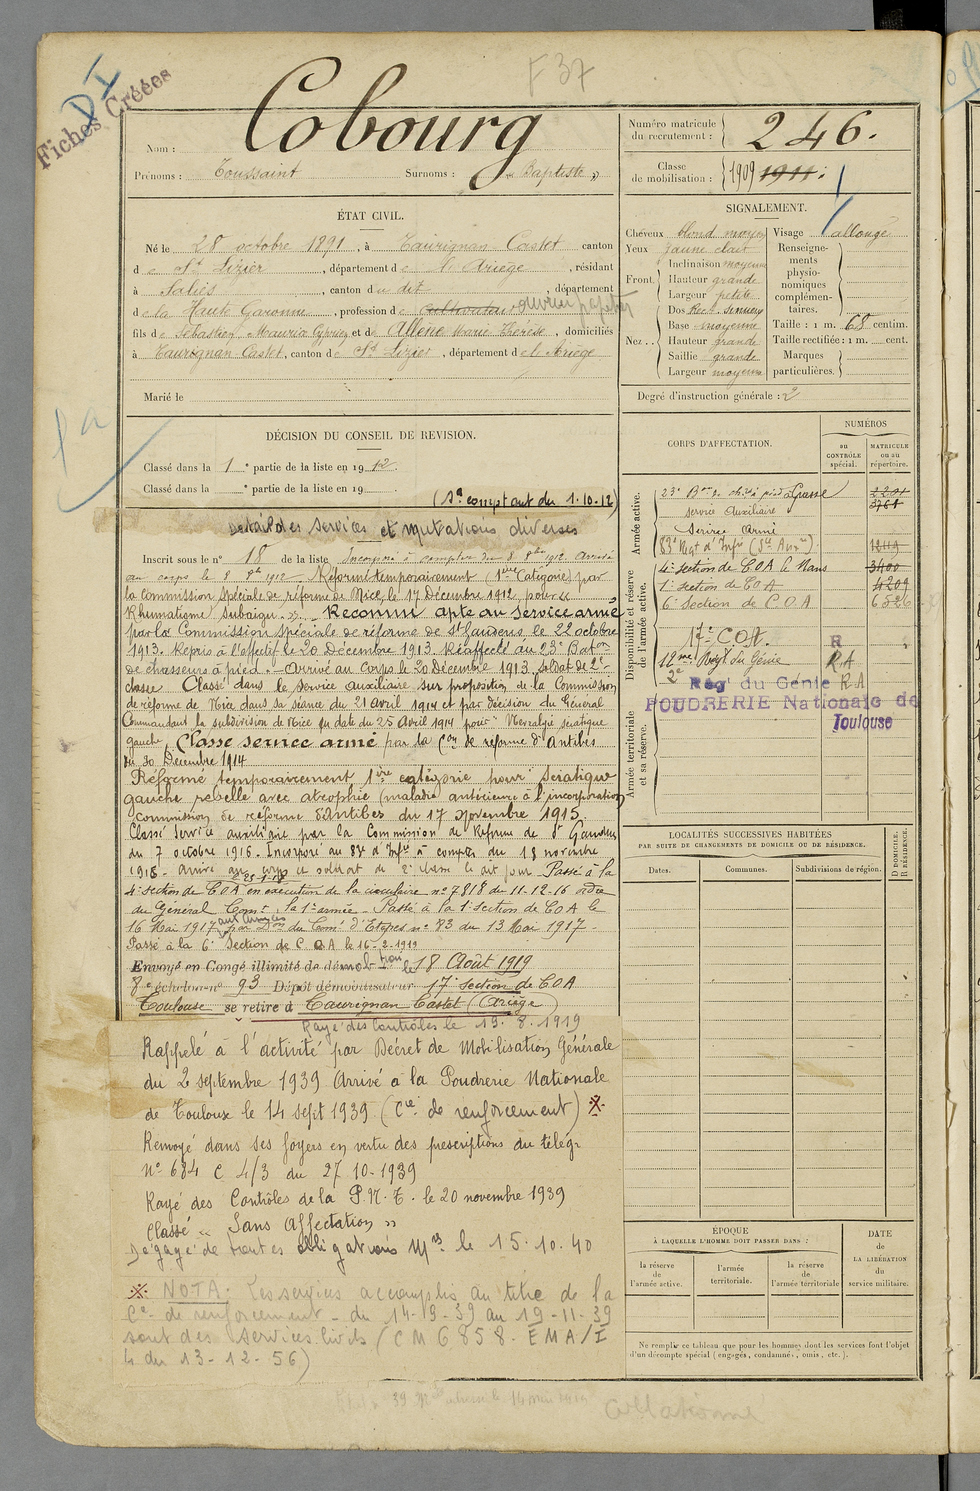 F 37
DI
Fiches Créées
Nom : Cobourg
Prénoms : Toussaint Surnoms : « Baptiste »
Numéro matricule du recrutement : 246.
Classe de mobilisation : 1909 1911
ÉTAT CIVIL.
Né le 28 octobre 1891, à Taurignan Castet canton
d e St Lizier, département d e l'Ariège, résidant
à Saliès, canton d u dit, département
d e la Haute Garonne, profession de cultivateur ouvrier papetier
fils de Sébastien Maurice et de Marie Thérèse, domiciliés
à Taurignan Castet, canton de St Lizier, département de l'Ariège
Marié le
SIGNALEMENT.
Cheveux blond moyen
Yeux jaune clair
Front. Inclinaison moyenne
Hauteur grande
Largeur petite
Nez . . Dos Rect. sinueux
Base moyenne
Hauteur grande
Saillie grande
Largeur moyenne
Visage allongé
Renseignements physionomiques complémentaires.
Taille : 1 m. 68 centim.
Taille rectifiée : 1 m. cent.
Marques particulières.
Degré d'instruction générale : 2
1a
DÉCISION DU CONSEIL DE REVISION.
Classé dans la 1e partie de la liste en 1912.
Classé dans la e partie de la liste en 19
(Sr comptant du 1.10.12)
Détail des services et mutations diverses
Inscrit sous le n° 18 de la liste Incorporé à compter du 8 8bre 1912. Arrivé
au corps le 8 8bre 1912. Réformé temporairement (1ère Catégorie) par
la commission spéciale de réforme de Nice, le 17 Décembre 1912 pour «
Rhumatisme subaigu. » Reconnu apte au service armé
par la Commission spéciale de réforme de St Gaudens, le 22 octobre
1913. Repris à l'effectif le 20 Décembre 1913. Réaffecté au 23e Baton
de chasseurs à pied. Arrivé au Corps le 20 Décembre 1913. Soldat de 2e
classe Classé dans le service auxiliaire sur proposition de la Commission
de réforme de Nice dans sa séance du 21 avril 1914 et par décision du Général
Commandant la subdivision de Nice en date du 25 Avril 1914 pour « Nevralgie sciatique
gauche, Classé service armé par la Con de réforme d'Antibes
du 30 Décembre 1914
Réformé temporairement 1ère catégorie pour sciatique
gauche rebelle avec atrophie (maladie antérieure à l'incorporation
commission de réforme d'Antibes du 17 novembre 1915.
Classé Service auxiliaire par la Commission de Réforme de St Gaudens
du 7 octobre 1916. Incorporé au 83e d'Infie à compter du 18 novembre
1916. Arrivé au corps et soldat de 2e classe le dit jour Passé à la
4e section de COA en exécution de la circulaire n° 7818 du 11-12-16 ordre
du Général Comt la 1e armée. Passé à la 1e section de COA le
16 Mai 1917 par Don du Comt d'Etapes n° 83 du 13 Mai 1917.
aux armées
Passé à la 6e Section de C O A le 16-2-1919
Envoyé en Congé illimité de démobtion le 18 Août 1919
8e échelon n° 93 Dépôt démobilisateur 17e section de COA
Toulouse se retire à Taurignan Castet (Ariège)
Rayé des Contrôles le 19.8.1919
Rappelé à l'activité par Décret de Mobilisation Générale
du 2 septembre 1939 Arrivé à la Poudrerie Nationale
de Toulouse le 14 sept 1939 (Cie de renforcement) ※
Renvoyé dans ses foyers en vertu des prescriptions du télégr
N° 684 C 4/3 du 27 10-1939
Rayé des Contrôles de la P.N.T. le 20 novembre 1939
Classé « Sans Affectation »
Dégagé de toutes obligations Mres le 15.10.40
※ NOTA : Les services accomplis au titre de la
Cie de renforcement - du 14-9-39 au 19-11-39
sont des services civils (CM 6858. EMA/I
4 du 13-12-56)
CORPS D'AFFECTATION.
NUMÉROS
au CONTRÔLE spécial.
MATRICULE ou au répertoire.
Armée active.
23e Bon de chrs à pied Grasse 2201
Service Auxiliaire 3761
Service Armé
83e Régt d'Infie (Sce Auxre) 12119
Disponibilité et réserve de l'armée active.
4e section de COA le Mans 3400
1e section de COA 4209
6e Section de C.O.A. 6526
17e COA. R
2e Régt du Génie RA
Régt du Génie RA
POUDRERIE Nationale de
Toulouse
Armée territoriale et sa réserve.
LOCALITÉS SUCCESSIVES HABITÉES
PAR SUITE DE CHANGEMENTS DE DOMICILE OU DE RÉSIDENCE.
Dates. Communes. Subdivisions de région. D DOMICILE. R RÉSIDENCE.
ÉPOQUE
À LAQUELLE L'HOMME DOIT PASSER DANS :
la réserve de l'armée active.
l'armée territoriale.
la réserve de l'armée territoriale
DATE de LA LIBÉRATION du service militaire.
Ne remplir ce tableau que pour les hommes dont les services font l'objet
d'un décompte spécial (engagés, condamnés, omis, etc.).
Collationné